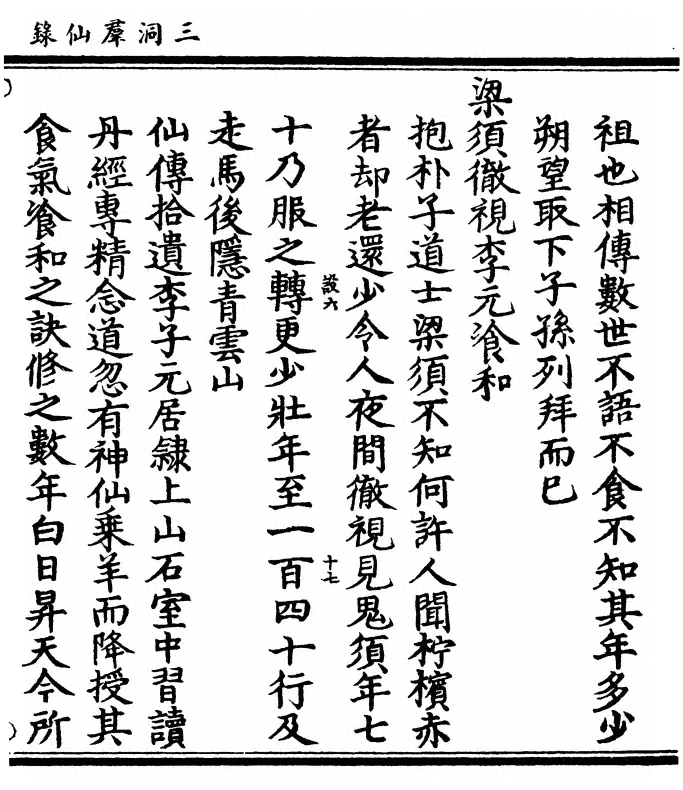 三洞羣仙錄
祖也相傳數世不語不食不知其年多少
朔望取下子孫列拜而已
梁須徹視李元飡和
抱朴子道士梁須不知何許人聞柠檳赤
者却老還少令人夜間徹視見鬼須年七
設六
十七
十乃服之轉更少壯年至一百四十行及
走馬後隱青雲山
仙傳拾遺李子元居隷上山石室中習讀
丹經專精念道忽有神仙乗羊而降授其
食氣飡和之訣修之數年白日昇天今所